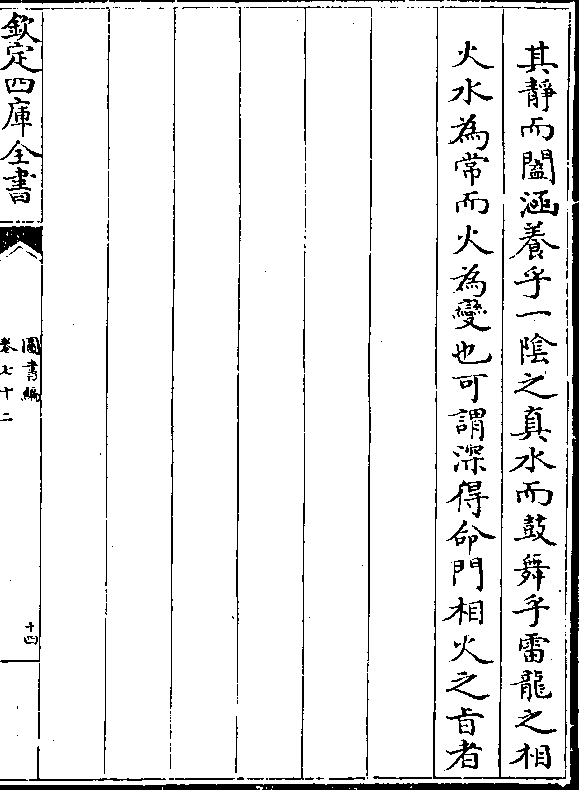 其靜而闔涵養乎一陰之真水而鼓舞乎雷龍之相
火水為常而火為變也可謂深得命門相火之㫖者
欽定四庫全書
圖書編
卷七十二
十四